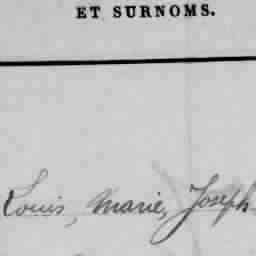 ET SURNOMS.
Louis, Marie, Joseph